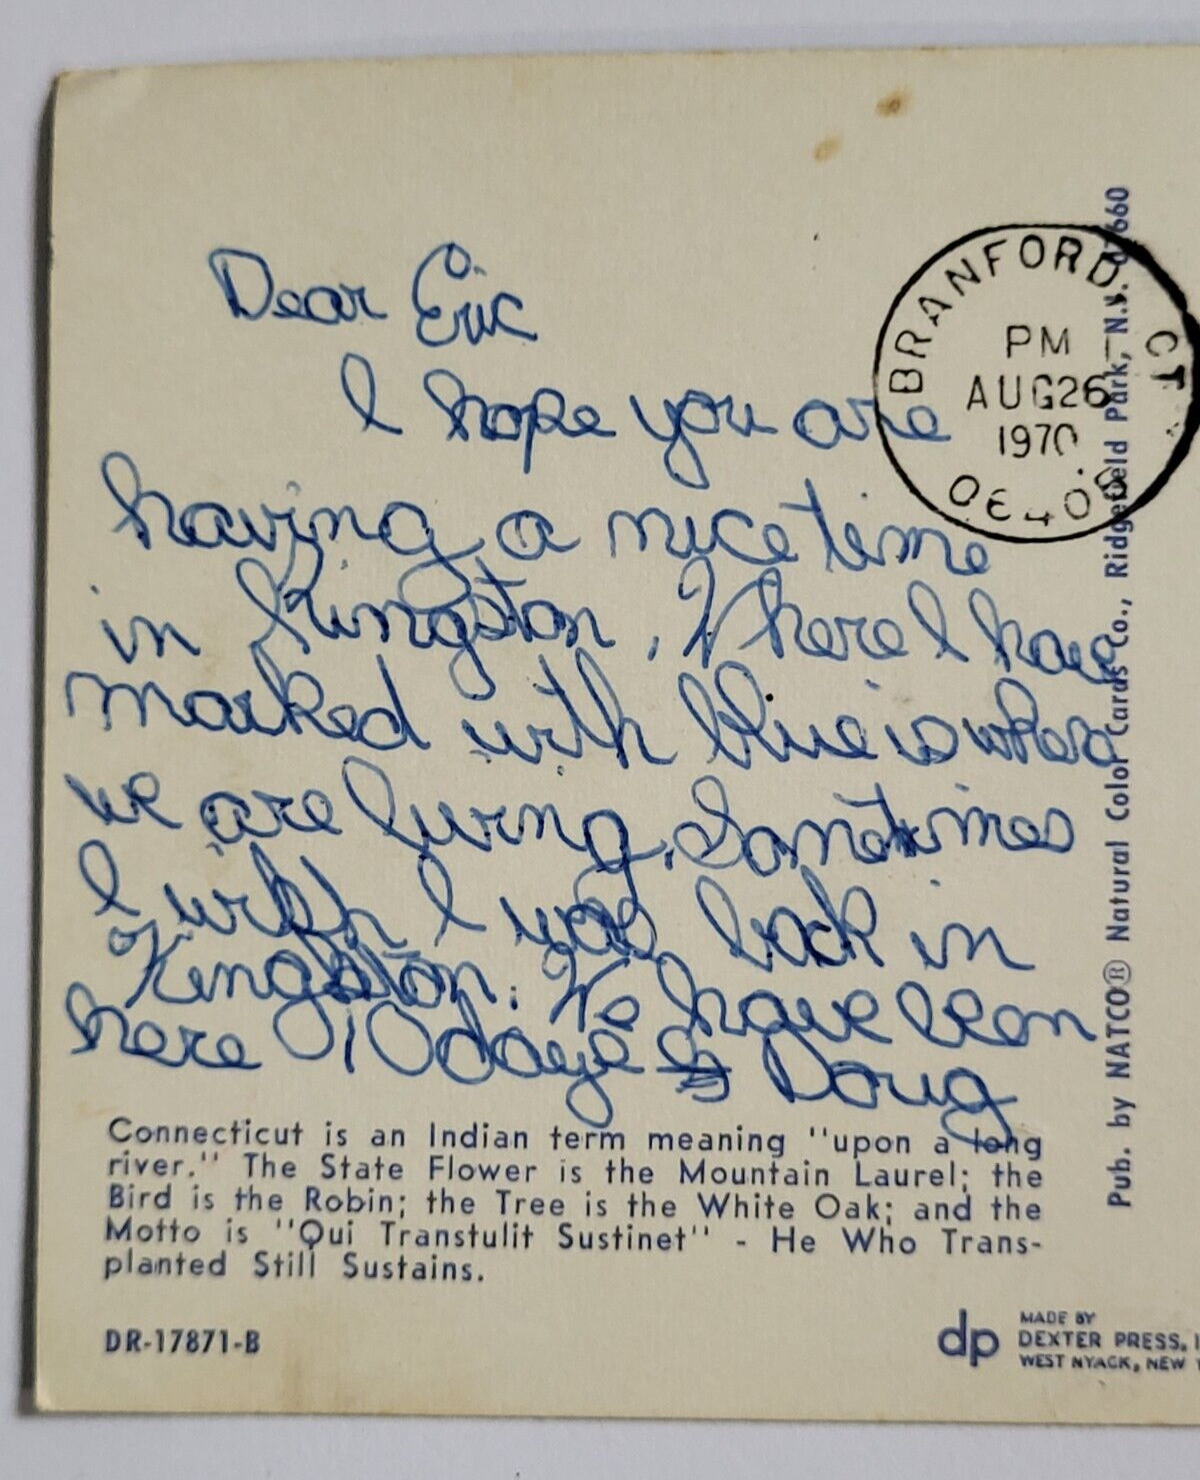 Dear Eric
I hope you are
having a nice time
in Kingston. Where I have
marked with blue is where
we are living. Sometimes
I wish I was back in
Kingston. We have been
here 10 days Doug
BRANFORD, CT
PM
AUG 26
1970
06405
Connecticut is an Indian term meaning "upon a long
river." The State Flower is the Mountain Laurel; the
Bird is the Robin; the Tree is the White Oak; and the
Motto is "Qui Transtulit Sustinet" - He Who Trans-
planted Still Sustains.
DR-17871-B
dp
MADE BY
DEXTER PRESS,
WEST NYACK, NEW
Pub. by NATCO® Natural Color Cards Co., Ridgefield Park, N.J. 07660